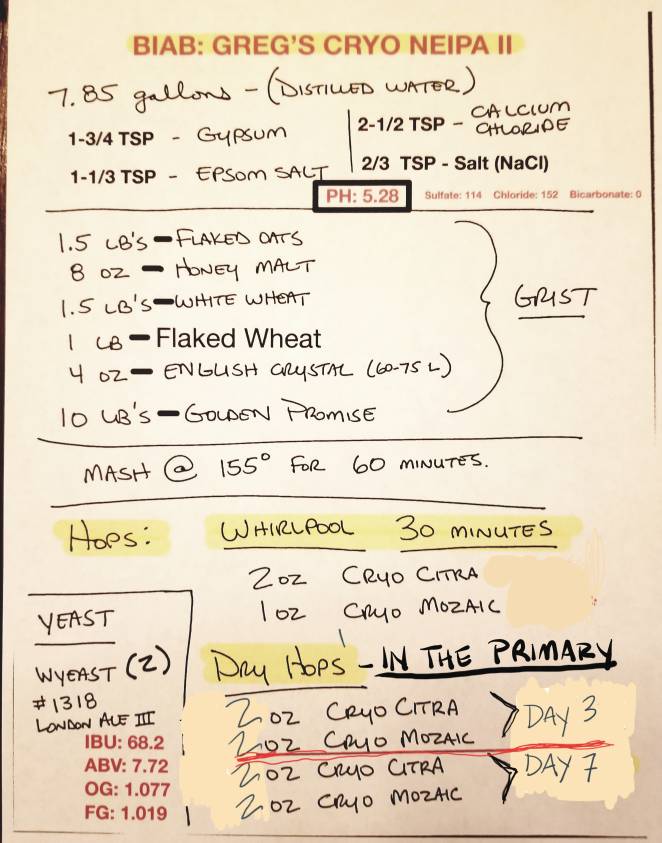 BIAB: GREG'S CRYO NEIPA II
7.85 gallons - (DISTILLED WATER)
1-3/4 TSP - GYPSUM
2-1/2 TSP - CALCIUM CHLORIDE
1-1/3 TSP - EPSOM SALT
2/3 TSP - Salt (NaCl)
PH: 5.28 Sulfate: 114 Chloride: 152 Bicarbonate: 0
1.5 LB'S - FLAKED OATS
8 OZ - HONEY MALT
1.5 LB'S - WHITE WHEAT
1 LB - Flaked Wheat
4 OZ - ENGLISH CRYSTAL (60-75 L)
10 LB'S - GOLDEN PROMISE
GRIST
MASH @ 155° FOR 60 MINUTES.
HOPS:
WHIRLPOOL 30 MINUTES
2 OZ CRYO CITRA
1 OZ CRYO MOZAIC
DRY HOPS - IN THE PRIMARY
2 OZ CRYO CITRA
2 OZ CRYO MOZAIC
DAY 3
2 OZ CRYO CITRA
2 OZ CRYO MOZAIC
DAY 7
YEAST
WYEAST (2)
#1318
LONDON ALE III
IBU: 68.2
ABV: 7.72
OG: 1.077
FG: 1.019